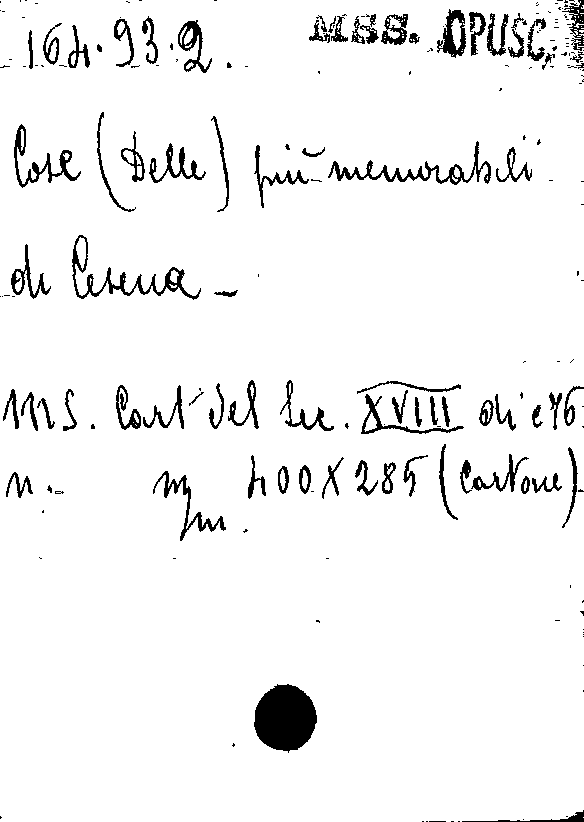 164.93.2. MSS. OPUSC.
Cose (Delle) più memorabili
di Cesena –
MS. Cart del Sec. XVIII di c 76
n. m/m. 400 X 285 (cartone)